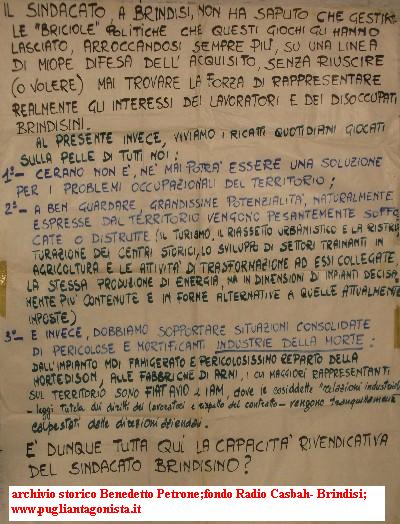 IL SINDACATO, A BRINDISI, NON HA SAPUTO CHE GESTIRE
LE "BRICIOLE" POLITICHE CHE QUESTI GIOCHI GLI HANNO
LASCIATO, ARROCCANDOSI SEMPRE PIU', SU UNA LINEA
DI MIOPE DIFESA DELL'ACQUISITO, SENZA RIUSCIRE
(O VOLERE) MAI TROVARE LA FORZA DI RAPPRESENTARE
REALMENTE GLI INTERESSI DEI LAVORATORI E DEI DISOCCUPATI
BRINDISINI.
AL PRESENTE INVECE, VIVIAMO I RICATTI QUOTIDIANI GIOCATI
SULLA PELLE DI TUTTI NOI:
1°- CERANO NON E', NE' MAI POTRA' ESSERE UNA SOLUZIONE
PER I PROBLEMI OCCUPAZIONALI DEL TERRITORIO;
2°- A BEN GUARDARE, GRANDISSIME POTENZIALITA', NATURALMENTE
ESPRESSE DAL TERRITORIO VENGONO PESANTEMENTE SOFFO
CATE O DISTRUTTE (IL TURISMO, IL RIASSETTO URBANISTICO E LA RISTRUT
TURAZIONE DEI CENTRI STORICI, LO SVILUPPO DI SETTORI TRAINANTI IN
AGRICOLTURA E LE ATTIVITA' DI TRASFORMAZIONE AD ESSI COLLEGATE,
LA STESSA PRODUZIONE DI ENERGIA, MA IN DIMENSIONI D'IMPIANTI DECISA
MENTE PIU' CONTENUTE E IN FORME ALTERNATIVE A QUELLE ATTUALMENTE
IMPOSTE)
3°- E INVECE, DOBBIAMO SOPPORTARE SITUAZIONI CONSOLIDATE
DI PERICOLOSE E MORTIFICANTI INDUSTRIE DELLA MORTE:
DALL'IMPIANTO MDI FAMIGERATO E PERICOLOSISSIMO REPARTO DELLA
MORTEDISON, ALLE FABBRICHE DI ARMI, I CUI MAGGIORI RAPPRESENTANTI
SUL TERRITORIO SONO FIAT AVIO E IAM, dove le cosiddette "relazioni industriali
- leggi tutela dei diritti dei lavoratori e rispetto del contratto - vengono tranquillamente
calpestati dalle direzioni aziendali.
E' DUNQUE TUTTA QUI LA CAPACITA' RIVENDICATIVA
DEL SINDACATO BRINDISINO?
archivio storico Benedetto Petrone;fondo Radio Casbah- Brindisi;
www.pugliantagonista.it